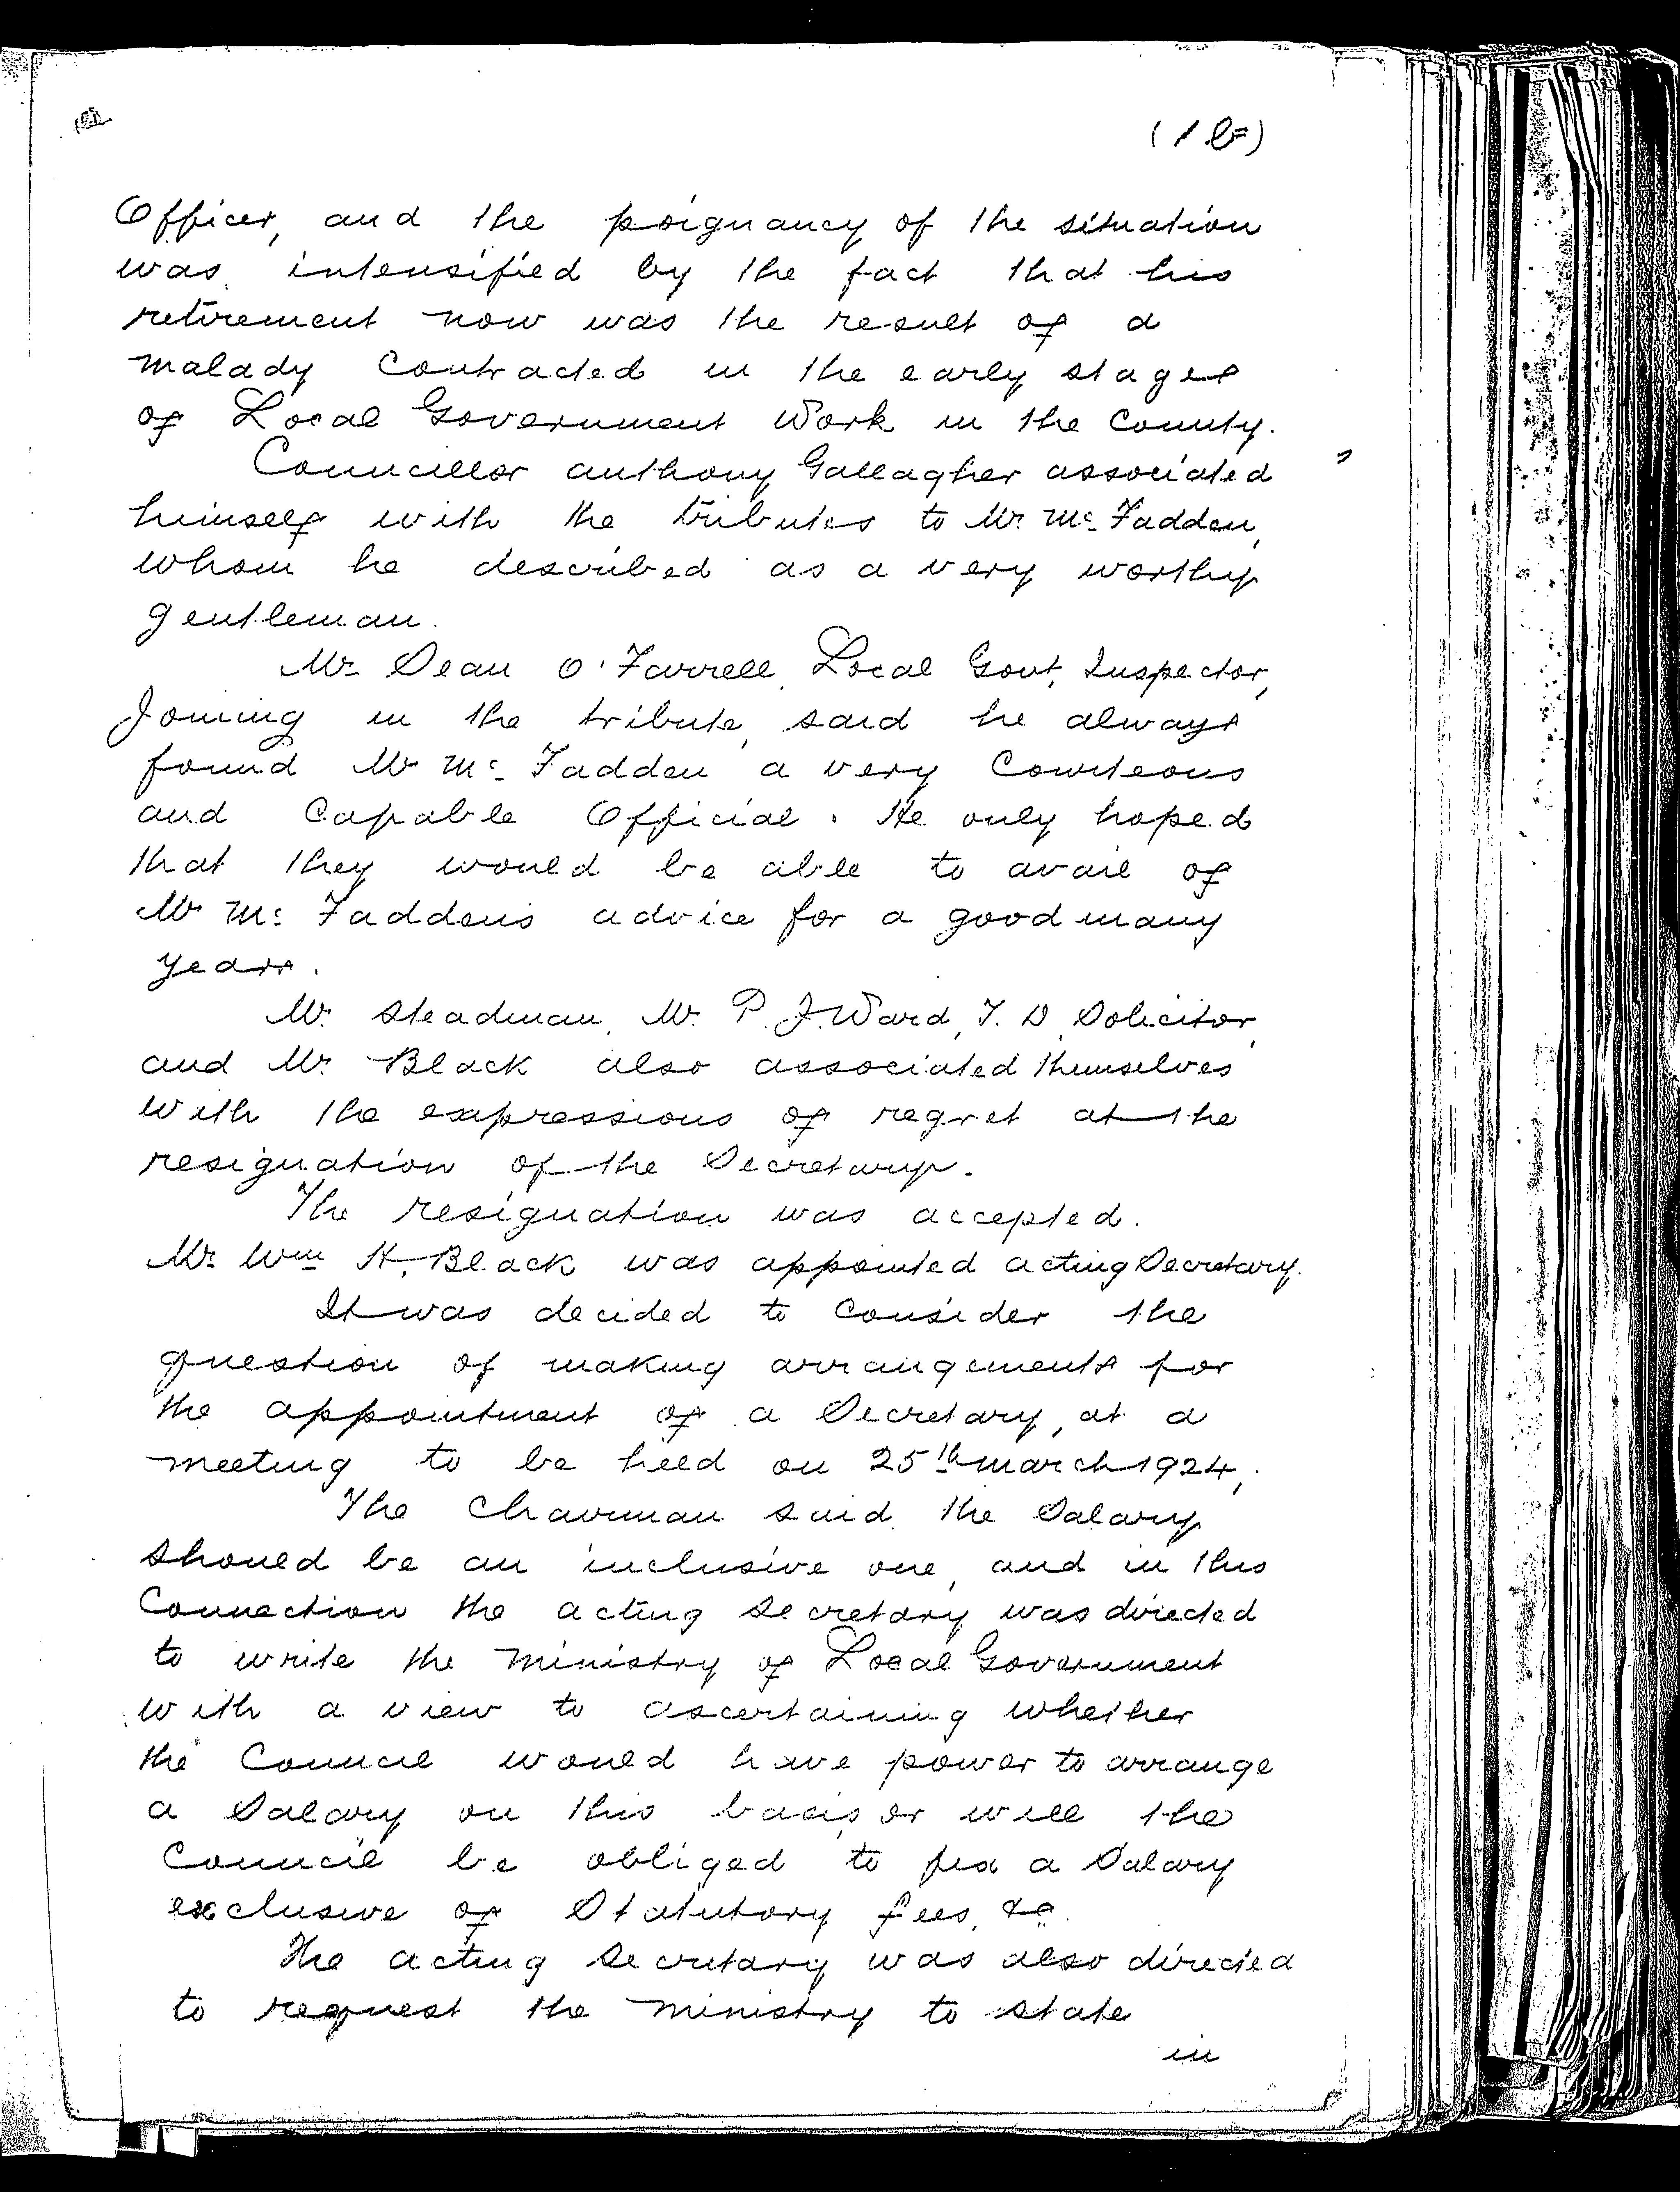 Officer, and the poignancy of the situation
was intensified by the fact that his
retirement now was the result of a
malady Contracted in the early stages
of Local Government Work in the County.
Councillor anthony Gallagher associated
himself with the tributes to Mr. Mc. Fadden,
whom he described as a very worthy
gentleman.
Mr. Sean O'Farrell, Local Govt, Inspector,
Joining in the tribute, said he always
found Mr Mc. Fadden a very Courteous
and Capable Official. He only hoped
that they would be able to avail of
Mr Mc. Faddens advice for a good many
years.
Mr. Steadman, Mr. P. J. Ward, T. D. Solicitor,
and Mr. Black also associated themselves
with the expressions of regret at the
resignation of the Secretary.
The resignation was accepted.
Mr. Wm H. Black was appointed acting Secretary.
It was decided to Consider the
question of making arrangements for
the appointment of a Secretary, at a
meeting to be held on 25th march 1924,
The Chairman said the Salary
should be an inclusive one, and in this
Connection the acting Secretary was directed
to write the Ministry of Local Government
with a view to ascertaining whether
the Council would have power to arrange
a Salary on this basis, or will the
Council be obliged to fix a Salary
exclusive of Statutory fees, &c.
The acting Secretary was also directed
to request the Ministry to state
in